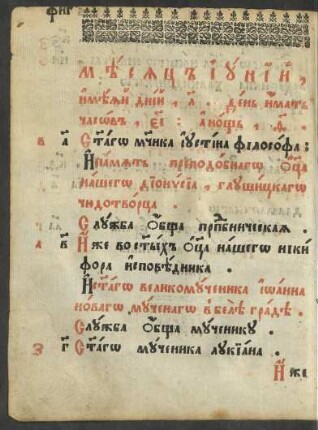 фиг
Мѣсяцъ іу́ній,
имѣяй дній, л҃. де́нь имать
часо́въ, е҃і: а нощь, ѳ҃.
в а҃ Ст҃агѡ мч҃нка іустіна філосоѳа:
И память преподобнагѡ ѻц҃а
нашегѡ, діѻнусіа, глушицкагѡ
чюдотворца.
Служба ѻбща прпⷣбническая.
г в҃ Иже во ст҃ыхъ ѻц҃а нашегѡ ники
фора исповѣдника.
И ст҃агѡ великомученика іѡанна
новагѡ мученагѡ в белѣ градѣ.
Служба ѻбща мученику.
з г҃ Ст҃агѡ мученика лукіана.
Иже